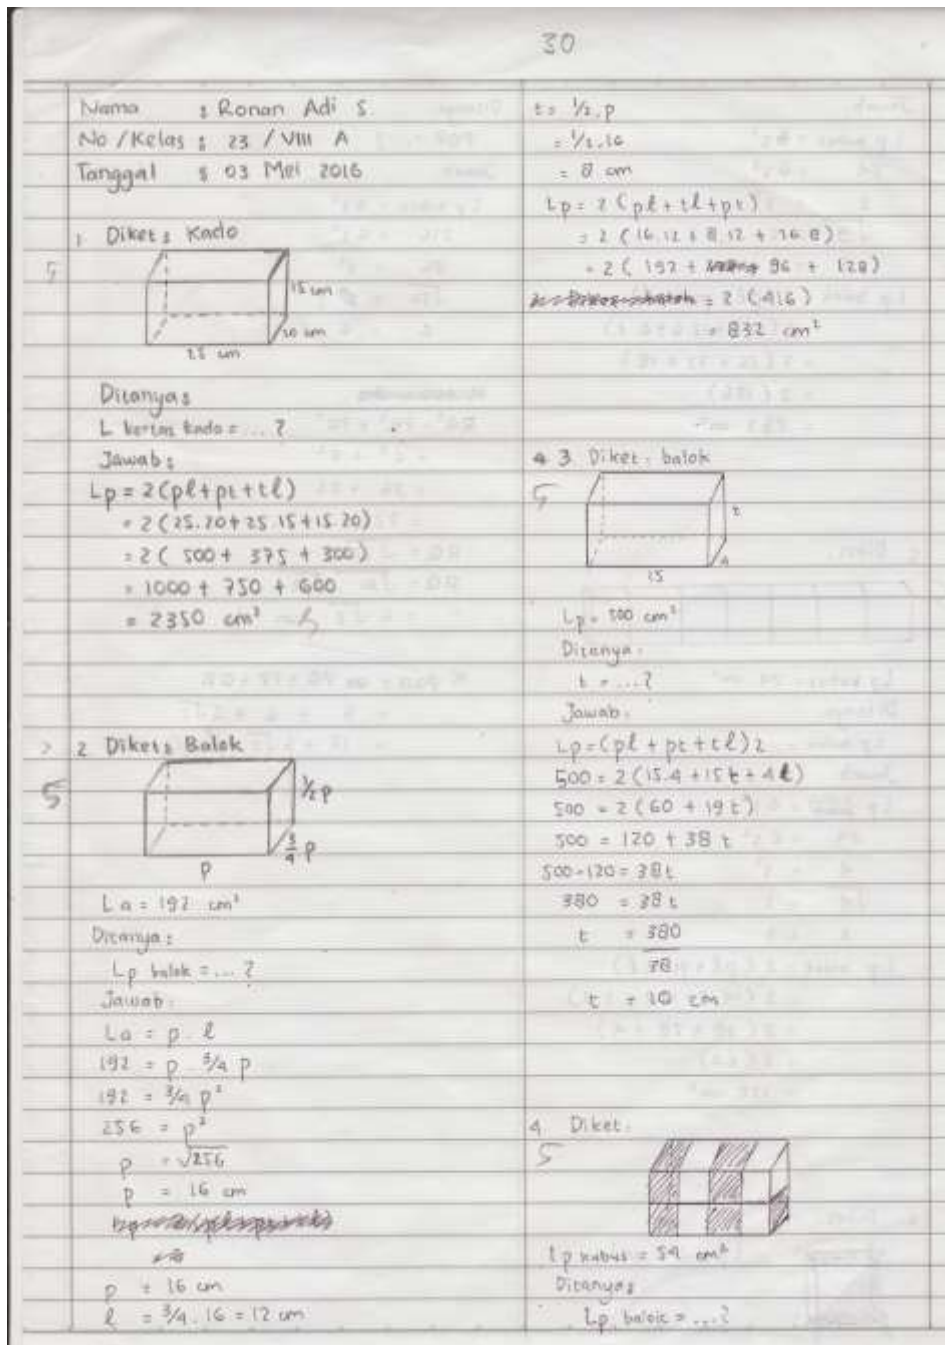 30
Nama : Ronan Adi S.
No / Kelas : 23 / VIII A
Tanggal : 03 Mei 2016
1 Diket : Kado
5
15 cm
20 cm
25 cm
Ditanya :
L kertas kado = ... ?
Jawab :
Lp = 2(pl+pt+tl)
= 2(25.20+25.15+15.20)
= 2( 500+ 375 + 300)
= 1000 + 750 + 600
= 2350 cm²
2 Diket : Balok
5
½p
¾ p
p
La = 192 cm²
Ditanya :
Lp balok = ... ?
Jawab :
La = p . l
192 = p . ¾ p
192 = ¾ p²
256 = p²
p = √256
p = 16 cm
p = 16 cm
l = ¾ . 16 = 12 cm
t = ½.p
= ½.16
= 8 cm
Lp = 2 (pl + tl + pt)
= 2 (16.12 + 8.12 + 16.8)
= 2 ( 192 + 96 + 128)
= 2 (416)
= 832 cm²
3 Diket : balok
5
t
4
15
Lp = 500 cm²
Ditanya :
t = ... ?
Jawab :
Lp = (pl + pt + tl) 2
500 = 2 (15.4 + 15t + 4t)
500 = 2 (60 + 19 t)
500 = 120 + 38 t
500-120 = 38t
380 = 38 t
t = 380
38
t = 10 cm
4 Diket :
5
Lp kubus = 54 cm²
Ditanya :
Lp balok = ... ?